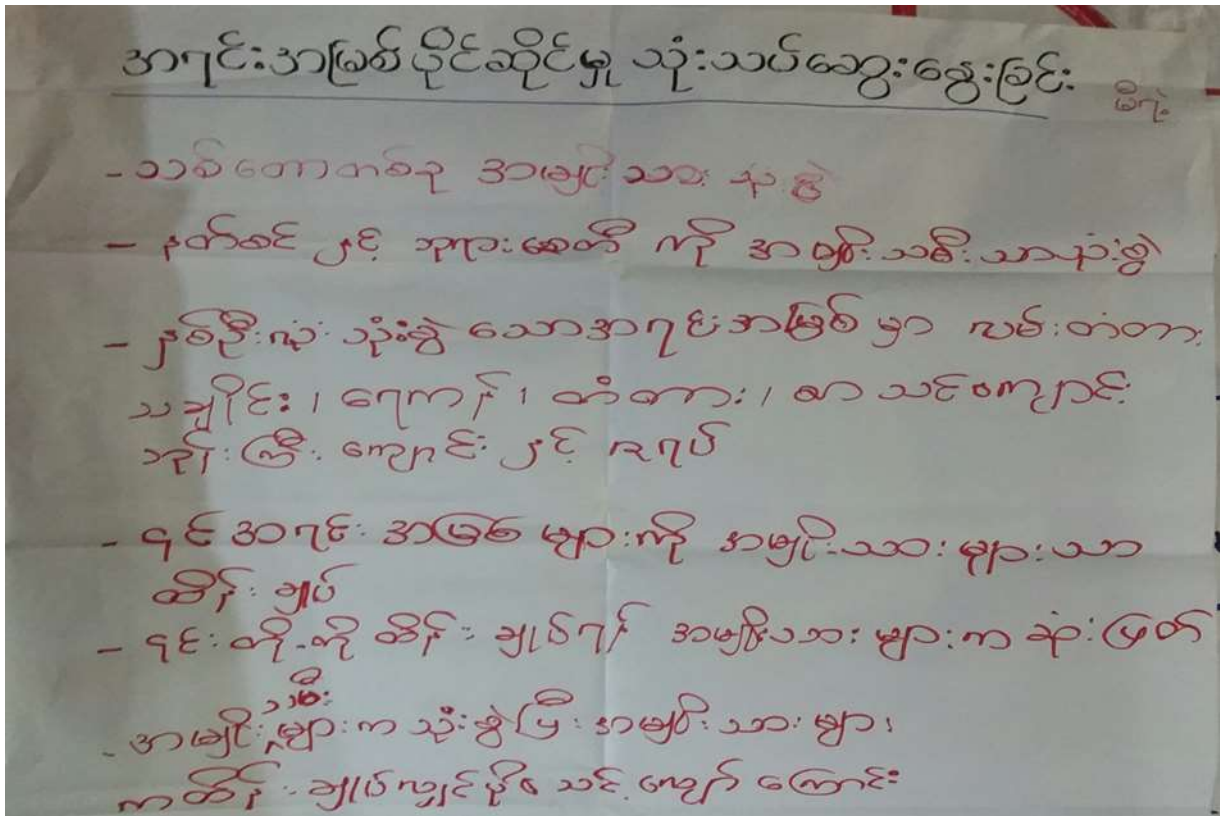 အရင်းအမြစ်ပိုင်ဆိုင်မှု သုံးသပ်ဆွေးနွေးခြင်း
- သစ်တောတစ်ခု အမျိုးသား သုံးစွဲ
- နတ်စင် နှင့် ဘုရားစေတီ ကို အမျိုးသမီးသာသုံးစွဲ
- နှစ်ဦးလုံး သုံးစွဲ သောအရင်းအမြစ် မှာ လမ်းတံတား
သချိုင်း၊ ရေကန်၊ တံတား၊ စာသင်ကျောင်း
ဘုန်းကြီးကျောင်း နှင့် ဇရပ်
- ၎င်အရင်းအမြစ် များကို အမျိုးသားများသာ
ထိန်းချုပ်
- ၎င်းတို့ကို ထိန်းချုပ်ရန် အမျိုးသားများက ဆုံးဖြတ်
- အမျိုးသမီးများက သုံးစွဲပြီး အမျိုးသားများ
ကထိန်းချုပ်လျှင်ပို၍ သင့်လျော်ကြောင်း